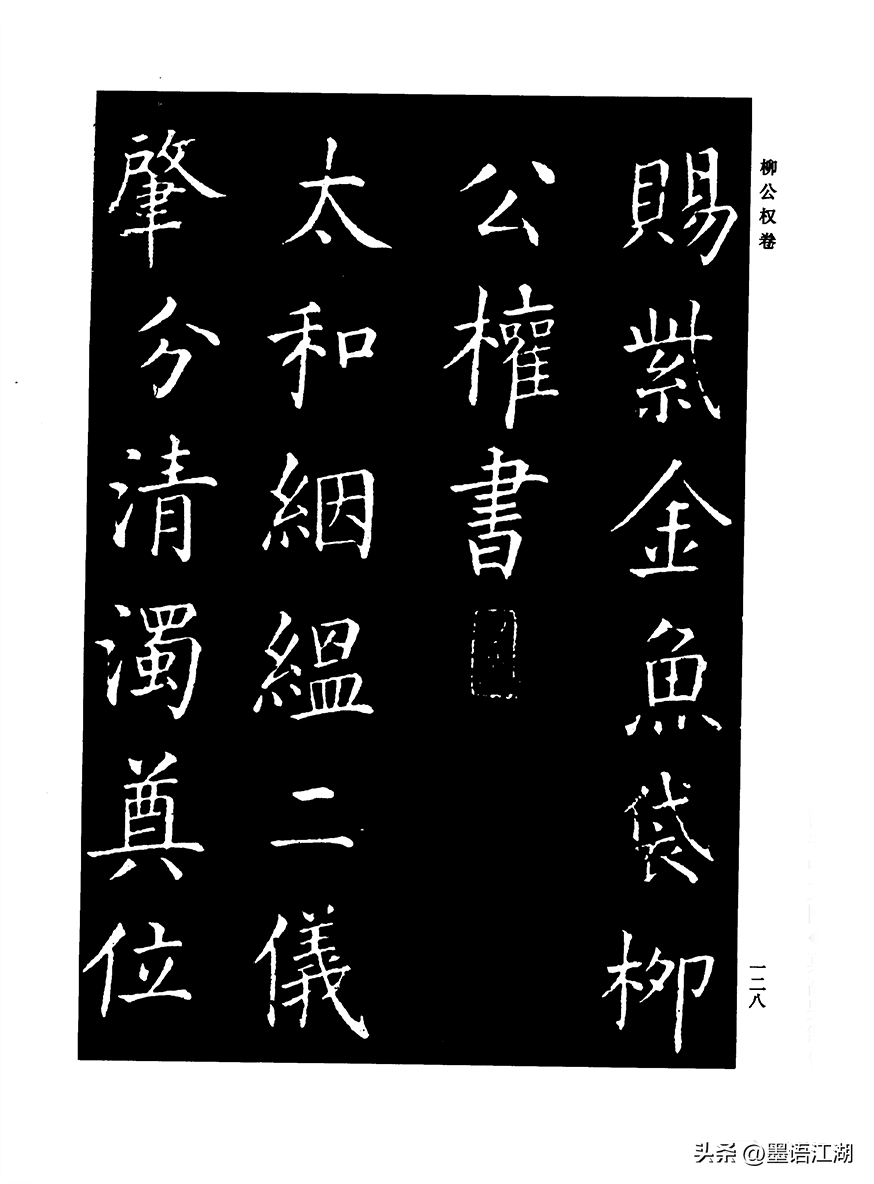 柳公权卷
賜紫金魚袋柳
公權書
太和絪緼二儀
肇分清濁奠位
一二八
头条 @墨语江湖